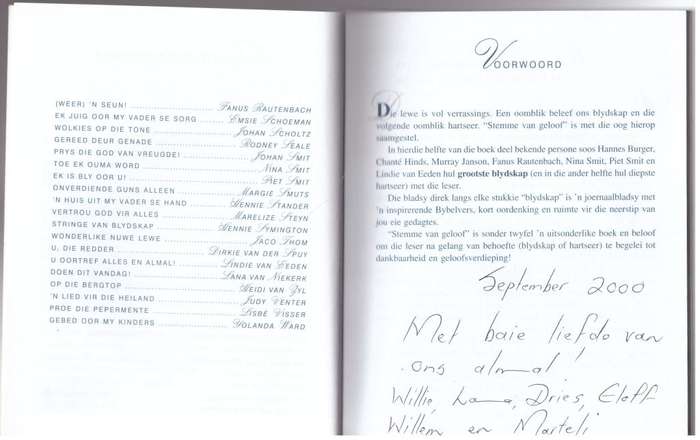 (WEER) 'N SEUN! FANUS RAUTENBACH
EK JUIG OOR MY VADER SE SORG EMSIE SCHOEMAN
WOLKIES OP DIE TONE JOHAN SCHOLTZ
GEREED DEUR GENADE RODNEY SEALE
PRYS DIE GOD VAN VREUGDE! JOHAN SMIT
TOE EK OUMA WORD NINA SMIT
EK IS BLY OOR U! PIET SMIT
ONVERDIENDE GUNS ALLEEN MARGIE SMUTS
'N HUIS UIT MY VADER SE HAND HENNIE STANDER
VERTROU GOD VIR ALLES MAHELIZE STEYN
STRINGE VAN BLYDSKAP HENNIE SYMINGTON
WONDERLIKE NUWE LEWE JACO THOM
U, DIE REDDER DIRKIE VAN DER SPUY
U OORTREF ALLES EN ALMAL! LINDIE VAN EEDEN
DOEN DIT VANDAG! LANA VAN NIEKERK
OP DIE BERGTOP HEIDI VAN ZYL
'N LIED VIR DIE HEILAND JUDY VENTER
PROE DIE PEPERMENTE LISBÉ VISSER
GEBED OOR MY KINDERS YOLANDA WARD
VOORWOORD
Die lewe is vol verrassings. Een oomblik beleef ons blydskap en die
volgende oomblik hartseer. “Stemme van geloof” is met die oog hierop
saamgestel.
In hierdie helfte van die boek deel bekende persone soos Hannes Burger,
Chanté Hinds, Murray Janson, Fanus Rautenbach, Nina Smit, Piet Smit en
Lindie van Eeden hul grootste blydskap (en in die ander helfte hul diepste
hartseer) met die leser.
Die bladsy direk langs elke stukkie “blydskap” is 'n joernaalbladsy met
'n inspirerende Bybelvers, kort oordenking en ruimte vir die neerstip van
jou eie gedagtes.
“Stemme van geloof” is sonder twyfel 'n uitsonderlike boek en beloof
om die leser na gelang van behoefte (blydskap of hartseer) te begelei tot
dankbaarheid en geloofsverdieping!
September 2000
Met baie liefde van
ons almal!
Willie, Dries, Eleff
Willem en Marteli